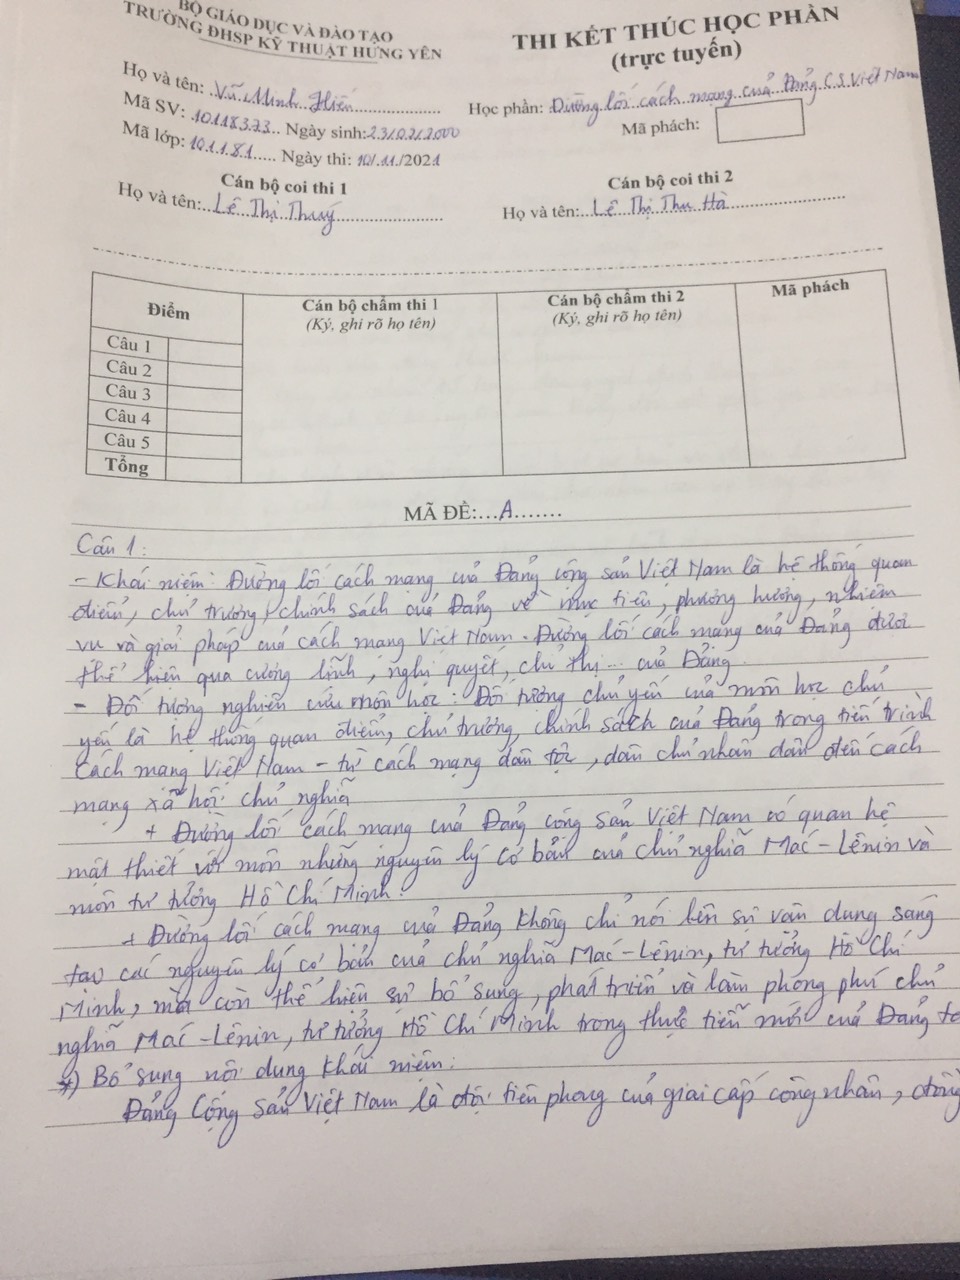 BỘ GIÁO DỤC VÀ ĐÀO TẠO
TRƯỜNG ĐHSP KỸ THUẬT HƯNG YÊN
THI KẾT THÚC HỌC PHẦN
(trực tuyến)
Họ và tên: Vũ Minh Hiến
Học phần: Đường lối cách mạng của Đảng CS Việt Nam
Mã SV: 10118373 Ngày sinh: 23/02/2000
Mã phách:
Mã lớp: 101181 Ngày thi: 10/11/2021
Cán bộ coi thi 1
Cán bộ coi thi 2
Họ và tên: Lê Thị Thuý
Họ và tên: Lê Thị Thu Hà
Điểm
Cán bộ chấm thi 1
(Ký, ghi rõ họ tên)
Cán bộ chấm thi 2
(Ký, ghi rõ họ tên)
Mã phách
Câu 1
Câu 2
Câu 3
Câu 4
Câu 5
Tổng
MÃ ĐỀ:...A.......
Câu 1:
- Khái niệm: Đường lối cách mạng của Đảng cộng sản Việt Nam là hệ thống quan
điểm, chủ trương, chính sách của Đảng về mục tiêu, phương hướng, nhiệm
vụ và giải pháp của cách mạng Việt Nam. Đường lối cách mạng của Đảng được
thể hiện qua cương lĩnh, nghị quyết, chỉ thị... của Đảng.
- Đối tượng nghiên cứu môn học: Đối tượng chủ yếu của môn học chủ
yếu là hệ thống quan điểm, chủ trương, chính sách của Đảng trong tiến trình
cách mạng Việt Nam - từ cách mạng dân tộc, dân chủ nhân dân đến cách
mạng xã hội chủ nghĩa
+ Đường lối cách mạng của Đảng cộng sản Việt Nam có quan hệ
mật thiết với môn những nguyên lý cơ bản của chủ nghĩa Mác-Lênin và
môn tư tưởng Hồ Chí Minh.
+ Đường lối cách mạng của Đảng không chỉ nói lên sự vận dụng sáng
tạo các nguyên lý cơ bản của chủ nghĩa Mác-Lênin, tư tưởng Hồ Chí
Minh, mà còn thể hiện sự bổ sung, phát triển và làm phong phú chủ
nghĩa Mác-Lênin, tư tưởng Hồ Chí Minh trong thực tiễn mới của Đảng ta
*) Bổ sung nội dung khái niệm:
Đảng Cộng Sản Việt Nam là đội tiên phong của giai cấp công nhân, đồng